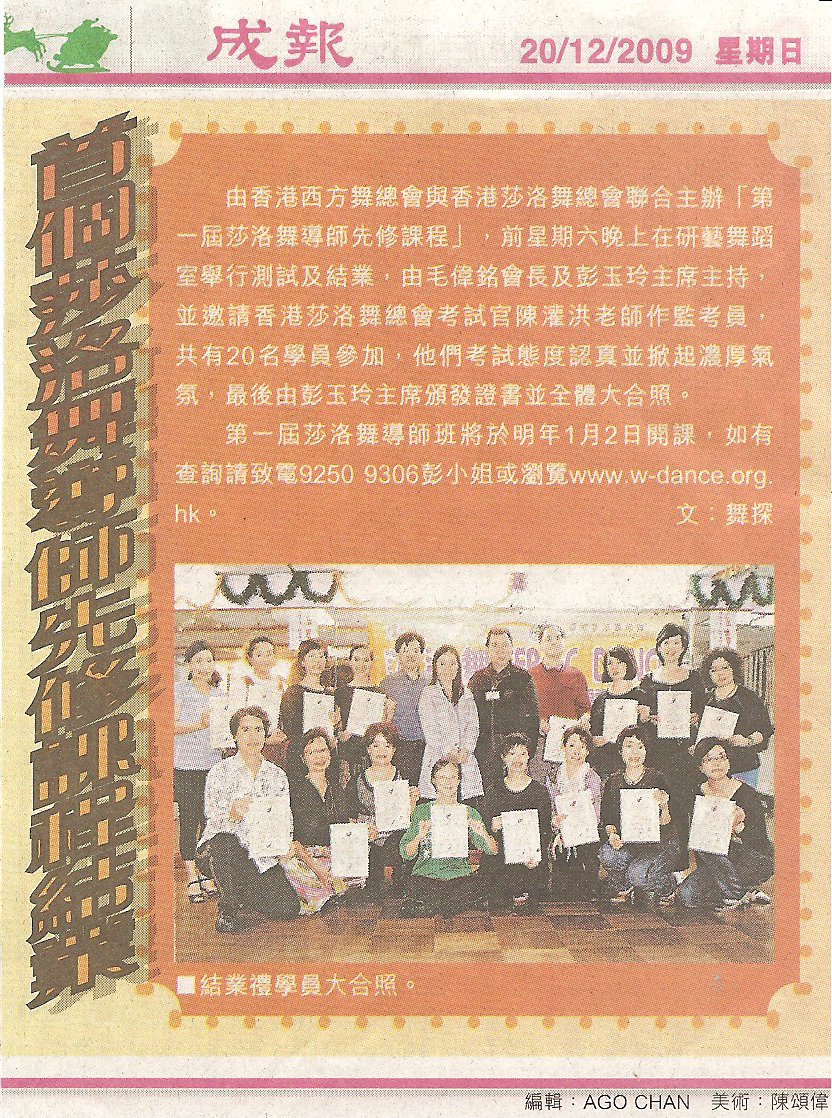 成報
20/12/2009 星期日
首個莎洛舞導師先修課程結業
由香港西方舞總會與香港莎洛舞總會聯合主辦「第
一屆莎洛舞導師先修課程」，前星期六晚上在研藝舞蹈
室舉行測試及結業，由毛偉銘會長及彭玉玲主席主持，
並邀請香港莎洛舞總會考試官陳灌洪老師作監考員，
共有20名學員參加，他們考試態度認真並掀起濃厚氣
氛，最後由彭玉玲主席頒發證書並全體大合照。
第一屆莎洛舞導師班將於明年1月2日開課，如有
查詢請致電9250 9306彭小姐或瀏覽www.w-dance.org.
hk。 文：舞探
■結業禮學員大合照。
編輯：AGO CHAN 美術：陳頌偉